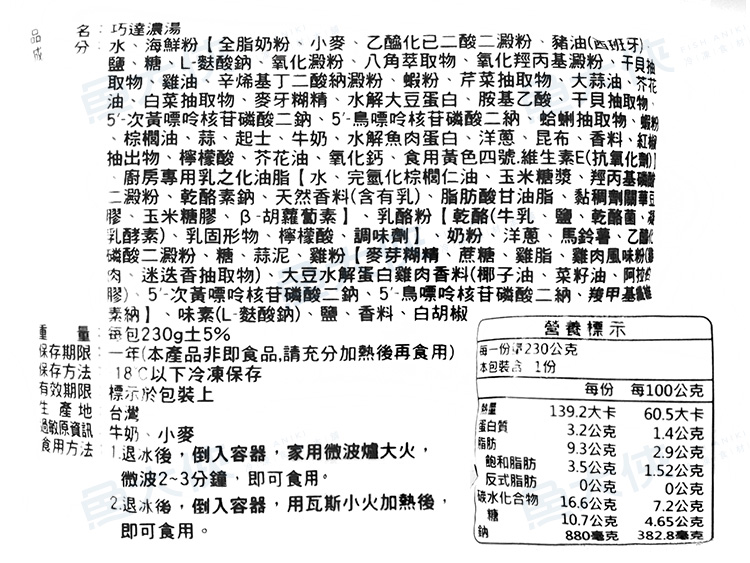 品 名：巧達濃湯
成 分：水、海鮮粉【全脂奶粉、小麥、乙醯化己二酸二澱粉、豬油(西班牙)、
鹽、糖、L-麩酸鈉、氧化澱粉、八角萃取物、氧化羥丙基澱粉、干貝抽
取物、雞油、辛烯基丁二酸納澱粉、蝦粉、芹菜抽取物、大蒜油、芥花
油、白菜抽取物、麥牙糊精、水解大豆蛋白、胺基乙酸、干貝抽取物、
5'-次黃嘌呤核苷磷酸二鈉、5'-鳥嘌呤核苷磷酸二納、蛤蜊抽取物、蝦粉
、棕櫚油、蒜、起士、牛奶、水解魚肉蛋白、洋蔥、昆布、香料、紅椒
抽出物、檸檬酸、芥花油、氧化鈣、食用黃色四號.維生素E(抗氧化劑)】
、廚房專用乳之化油脂【水、完氫化棕櫚仁油、玉米糖漿、羥丙基磷酸
二澱粉、乾酪素鈉、天然香料(含有乳)、脂肪酸甘油脂、黏稠劑關華豆
膠、玉米糖膠、β-胡蘿蔔素】、乳酪粉【乾酪(牛乳、鹽、乾酪菌、凝
乳酵素)、乳固形物、檸檬酸、調味劑】、奶粉、洋蔥、馬鈴薯、乙醯化
磷酸二澱粉、糖、蒜泥、雞粉【麥芽糊精、蔗糖、雞脂、雞肉風味粉(雞
肉、迷迭香抽取物)、大豆水解蛋白雞肉香料(椰子油、菜籽油、阿拉伯
膠)、5'-次黃嘌呤核苷磷酸二鈉、5'-鳥嘌呤核苷磷酸二納、羧甲基纖維
素納】、味素(L-麩酸鈉)、鹽、香料、白胡椒
重 量：每包230g±5%
保存期限：一年(本產品非即食品,請充分加熱後再食用)
保存方法：-18℃以下冷凍保存
有效期限：標示於包裝上
生 產 地：台灣
過敏原資訊：牛奶、小麥
食用方法：1.退冰後，倒入容器，家用微波爐大火，
微波2~3分鐘，即可食用。
2.退冰後，倒入容器，用瓦斯小火加熱後，
即可食用。
營養標示
每一份量230公克
本包裝含 1份
每份 每100公克
熱量 139.2大卡 60.5大卡
蛋白質 3.2公克 1.4公克
脂肪 9.3公克 2.9公克
飽和脂肪 3.5公克 1.52公克
反式脂肪 0公克 0公克
碳水化合物 16.6公克 7.2公克
糖 10.7公克 4.65公克
鈉 880毫克 382.8毫克